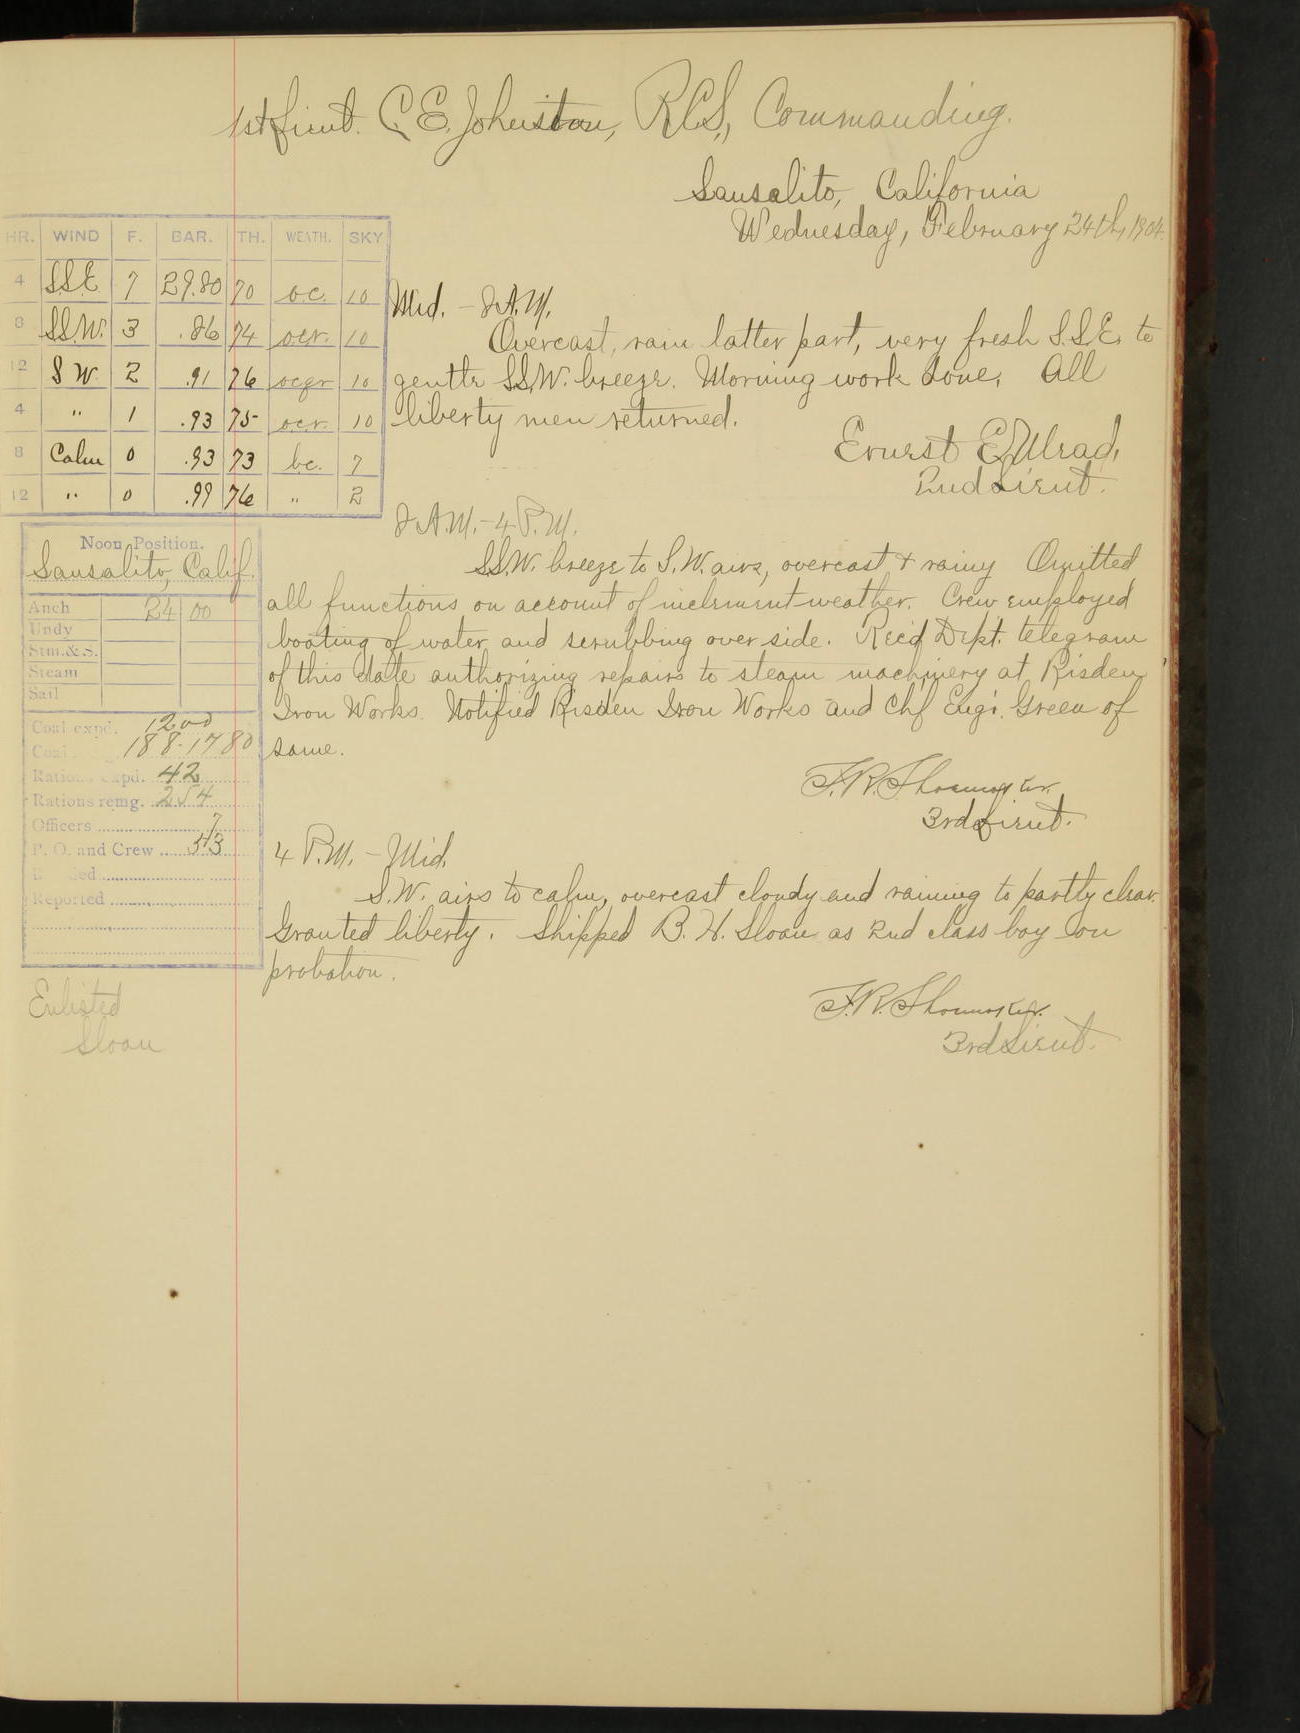 1st Lieut. C. E. Johnston, R.C.S., Commanding.
Sausalito, California
Wednesday, February 24th, 1904.
HR. WIND F. BAR. TH. WEATH. SKY
4 S.S.E. 7 29.80 70 o.c. 10
8 SS.W. 3 .86 74 ocr. 10
12 S W. 2 .91 76 ocqr 10
4 " 1 .93 75 ocr. 10
8 Calm 0 .93 73 bc. 7
12 " 0 .99 76 " 2
Mid. - 8 A.M.
Overcast, rain latter part, very fresh S.S.E. to
gentle S.S.W. breeze. Morning work done. All
liberty men returned.
Ernest E.
2nd Lieut.
Noon Position.
Sausalito, Calif.
Anch 24 00
Undy
Stm.& S.
Steam
Sail
Coal expd. 1200
Coal 188-1780
Rations expd. 42
Rations remg. 254
Officers 7
P. O. and Crew 43
Reported
Enlisted
Sloan
8 A.M. - 4 P.M.
S.S.W. breeze to S.W. airs, overcast & rainy Omitted
all functions on account of inclement weather. Crew employed
boating of water and scrubbing over side. Rec'd Dept. telegram
of this date authorizing repairs to steam machinery at Risden
Iron Works. Notified Risden Iron Works and Chf Engr. Green of
same.
F.R. Shoemaker.
3rd Lieut.
4 P.M. - Mid.
S.W. airs to calm, overcast cloudy and raining to partly clear.
Granted liberty. Shipped B. H. Sloan as 2nd class boy on
probation.
F.R. Shoemaker.
3rd Lieut.